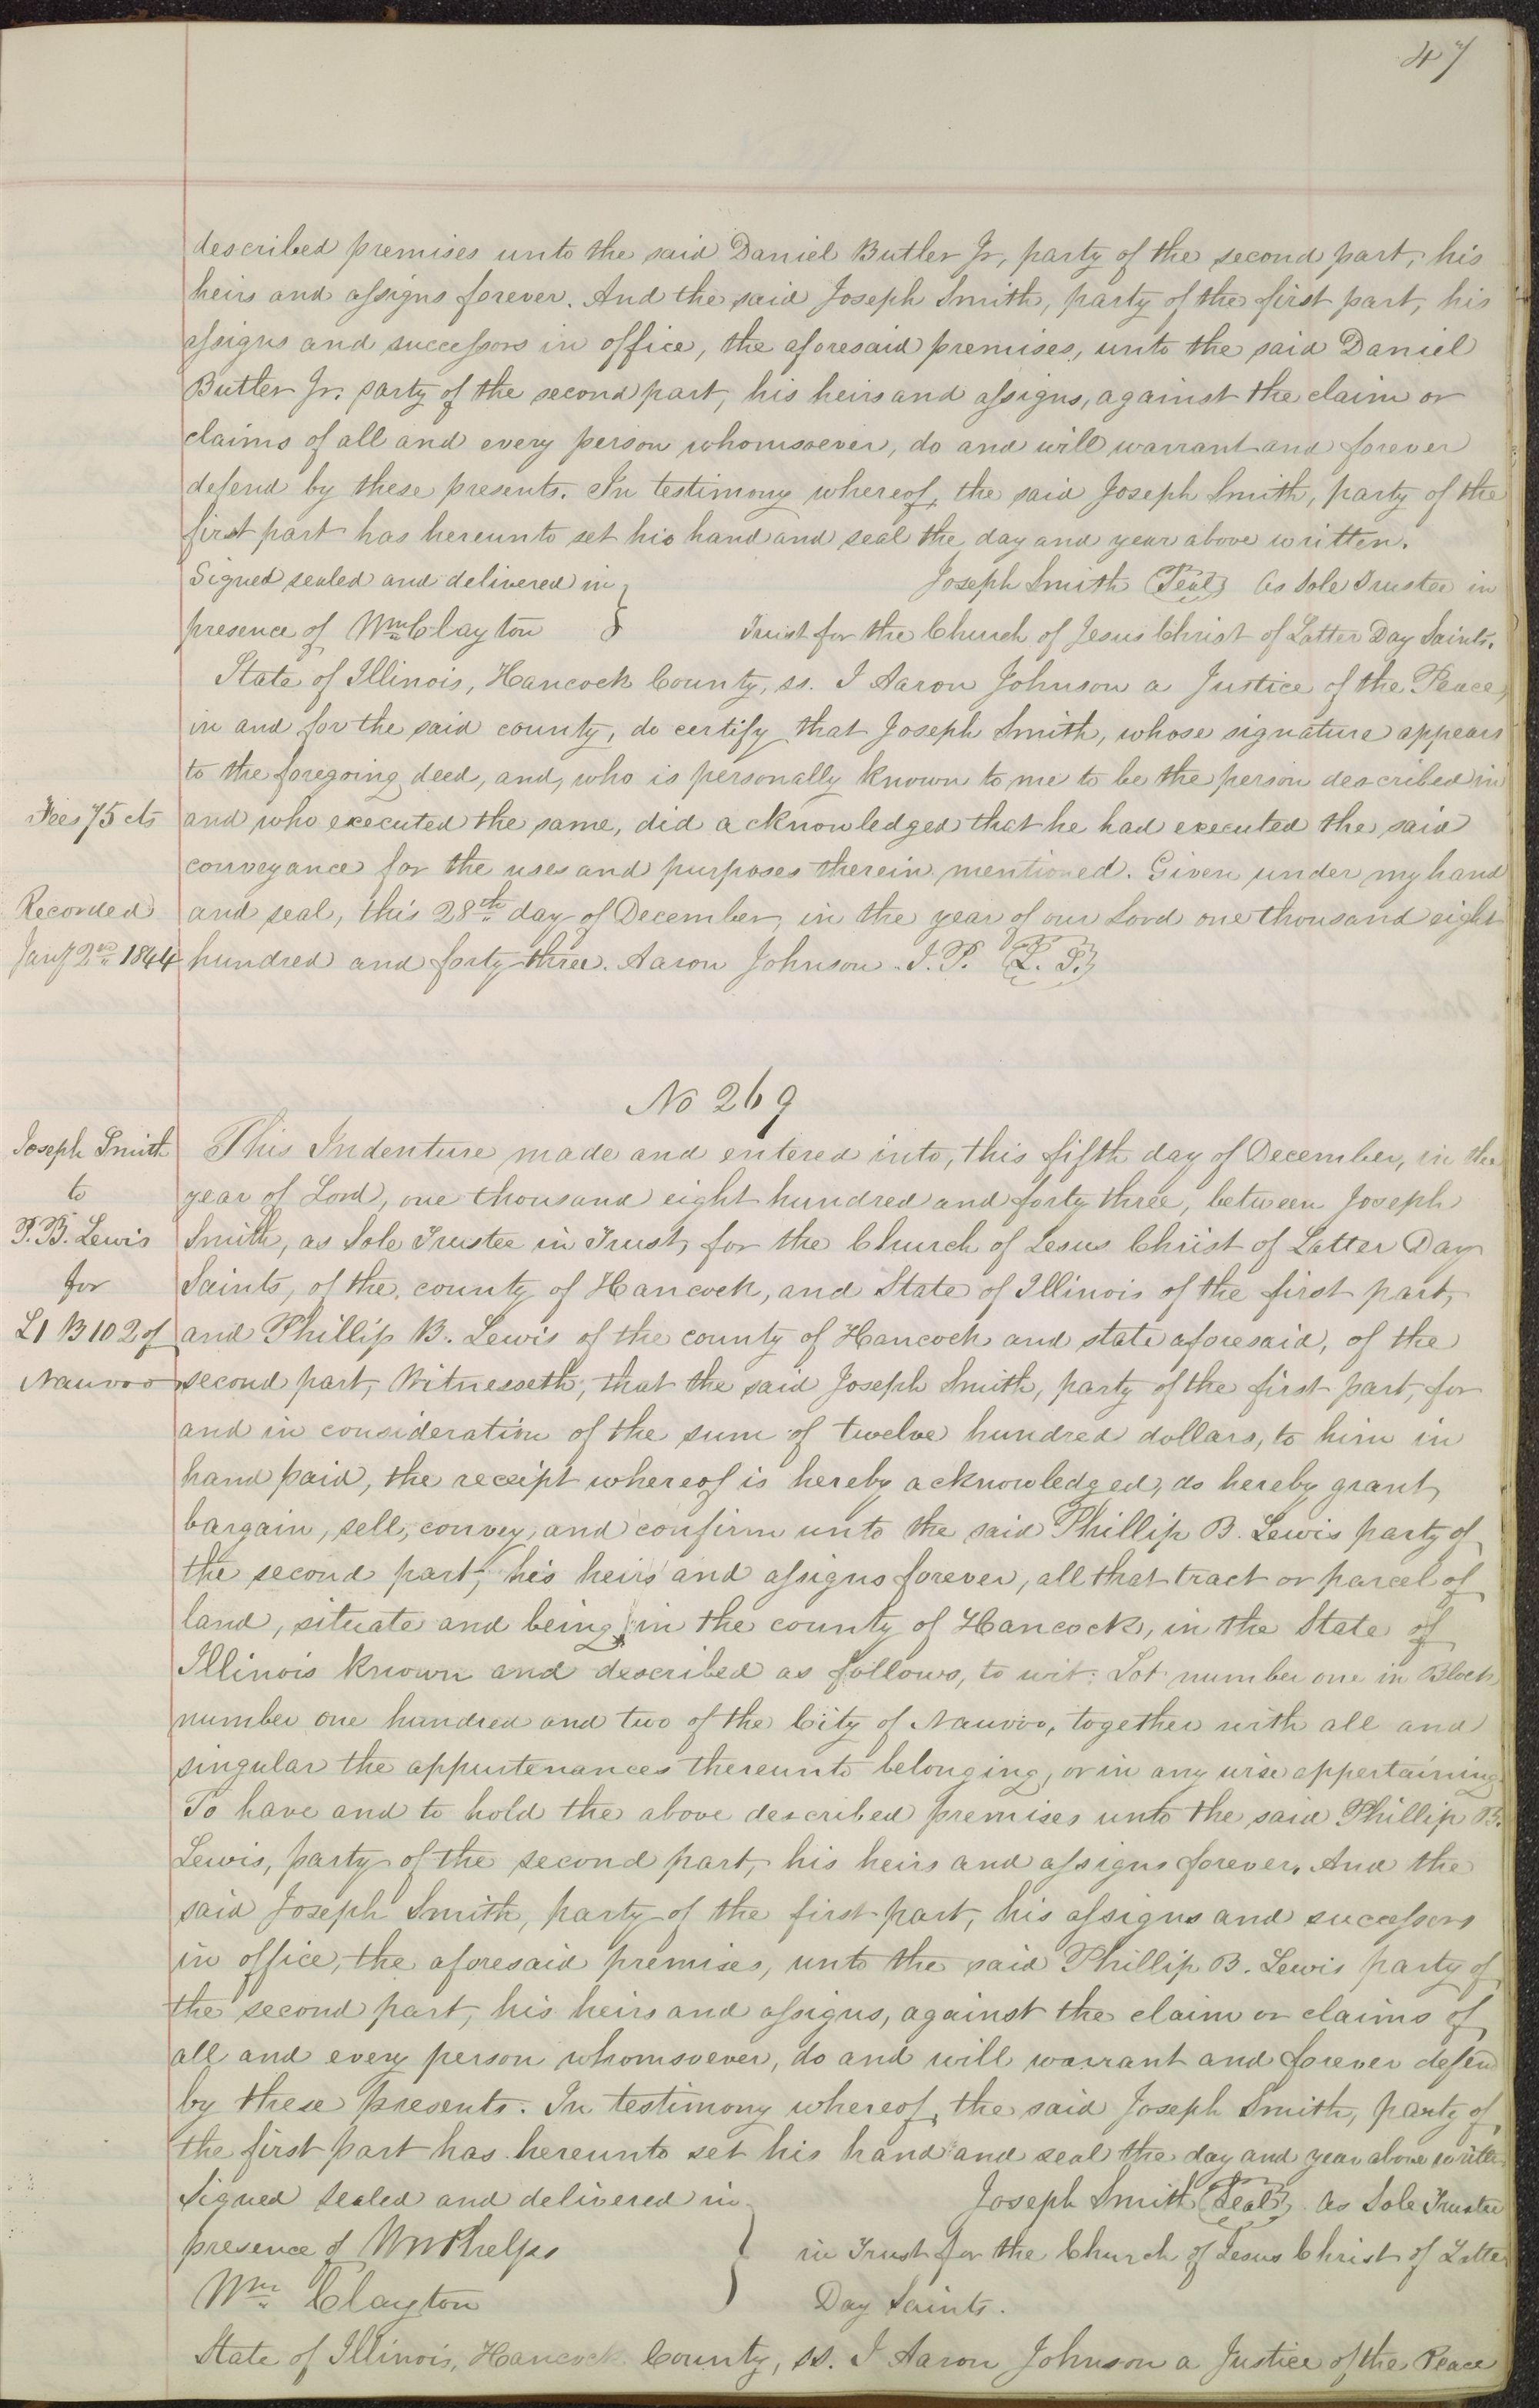 47
described premises unto the said Daniel Butler Jr, party of the second part, his
heirs and assigns forever. And the said Joseph Smith, party of the first part, his
assigns and successors in office, the aforesaid premises, unto the said Daniel
Butler Jr. party of the second part, his heirs and assigns, against the claim or
claims of all and every person whomsoever, do and will warrant and forever
defend by these presents. In testimony whereof, the said Joseph Smith, party of the
first part has hereunto set his hand and seal the day and year above written.
Signed sealed and delivered in } Joseph Smith (Seal) As Sole Trustee in
presence of Wm Clayton } Trust for the Church of Jesus Christ of Latter Day Saints.
State of Illinois, Hancock County, ss. I Aaron Johnson a Justice of the Peace,
in and for the said county, do certify that Joseph Smith, whose signature appears
to the foregoing deed, and, who is personally known to me to be the person described in
Fees 75 cts and who executed the same, did acknowledged that he had executed the said
conveyance for the uses and purposes therein mentioned. Given under my hand
Recorded and seal, this 28th day of December, in the year of our Lord one thousand eight
Jany 2nd 1844 hundred and forty three. Aaron Johnson. J.P. (L. S.)
No 269
Joseph Smith This Indenture made and entered into, this fifth day of December, in the
to year of Lord, one thousand eight hundred and forty three, between Joseph
P. B. Lewis Smith, as Sole Trustee in Trust, for the Church of Jesus Christ of Latter Day
for Saints, of the county of Hancock, and State of Illinois of the first part,
L1 B 102 of and Phillip B. Lewis of the county of Hancock and state aforesaid, of the
Nauvoo second part, Witnesseth, that the said Joseph Smith, party of the first part, for
and in consideration of the sum of twelve hundred dollars, to him in
hand paid, the receipt whereof is hereby acknowledged, do hereby grant,
bargain, sell, convey, and confirm unto the said Phillip B. Lewis party of
the second part, his heirs and assigns forever, all that tract or parcel of
land, situate and being in the county of Hancock, in the State of
Illinois known and described as follows, to wit: Lot number one in Block
number one hundred and two of the City of Nauvoo, together with all and
singular the appurtenances thereunto belonging, or in any wise appertaining
To have and to hold the above described premises unto the said Phillip B.
Lewis, party of the second part, his heirs and assigns forever. And the
said Joseph Smith, party of the first part, his assigns and successors
in office, the aforesaid premises, unto the said Phillip B. Lewis party of
the second part, his heirs and assigns, against the claim or claims of
all and every person whomsoever, do and will warrant and forever defend
by these presents. In testimony whereof, the said Joseph Smith, party of
the first part has hereunto set his hand and seal the day and year above written
Signed Sealed and delivered in } Joseph Smith (Seal) As Sole Trustee
presence of WW Phelps } in Trust for the Church of Jesus Christ of Latter
Wm Clayton } Day Saints.
State of Illinois, Hancock County, ss. I Aaron Johnson a Justice of the Peace